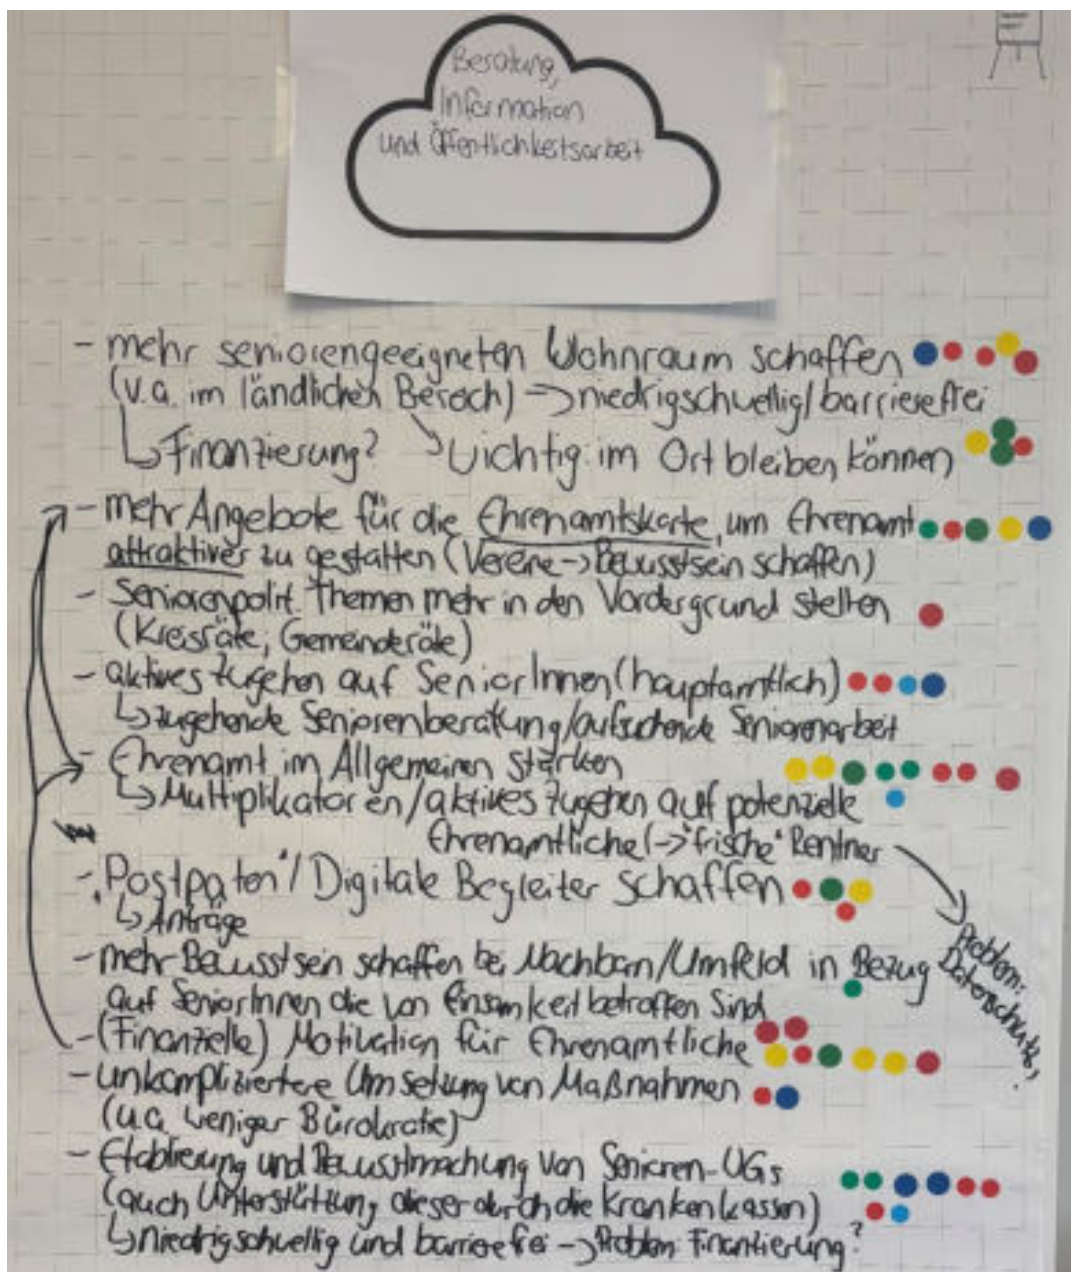 Beratung,
Information
und Öffentlichkeitsarbeit
- mehr seniorengeeigneten Wohnraum schaffen
(v.a. im ländlichen Bereich) -> niedrigschwellig/barrierefrei
↳ Finanzierung? ↘ Wichtig: im Ort bleiben können
- mehr Angebote für die Ehrenamtskarte, um Ehrenamt
attraktiver zu gestalten (Vereine -> Bewusstsein schaffen)
- Seniorenpolit. Themen mehr in den Vordergrund stellen
(Kreisräte, Gemeinderäte)
- aktives zugehen auf SeniorInnen (hauptamtlich)
↳ zugehende Seniorenberatung/aufsuchende Seniorenarbeit
- Ehrenamt im Allgemeinen stärken
↳ Multiplikatoren/aktives zugehen auf potenzielle
Ehrenamtliche (-> "frische" Rentner
- "Postpaten"/Digitale Begleiter schaffen
↳ Anträge
Problem:
Datenschutz
- mehr Bewusstsein schaffen bei Nachbarn/Umfeld in Bezug
auf SeniorInnen die von Einsamkeit betroffen sind
- (Finanzielle) Motivation für Ehrenamtliche
- unkompliziertere Umsetzung von Maßnahmen
(u.a. weniger Bürokratie)
- Etablierung und Bewusstmachung von Senioren-UGs
(auch Unterstützung dieser durch die Krankenkassen)
↳ niedrigschwellig und barrierefrei -> Problem: Finanzierung?